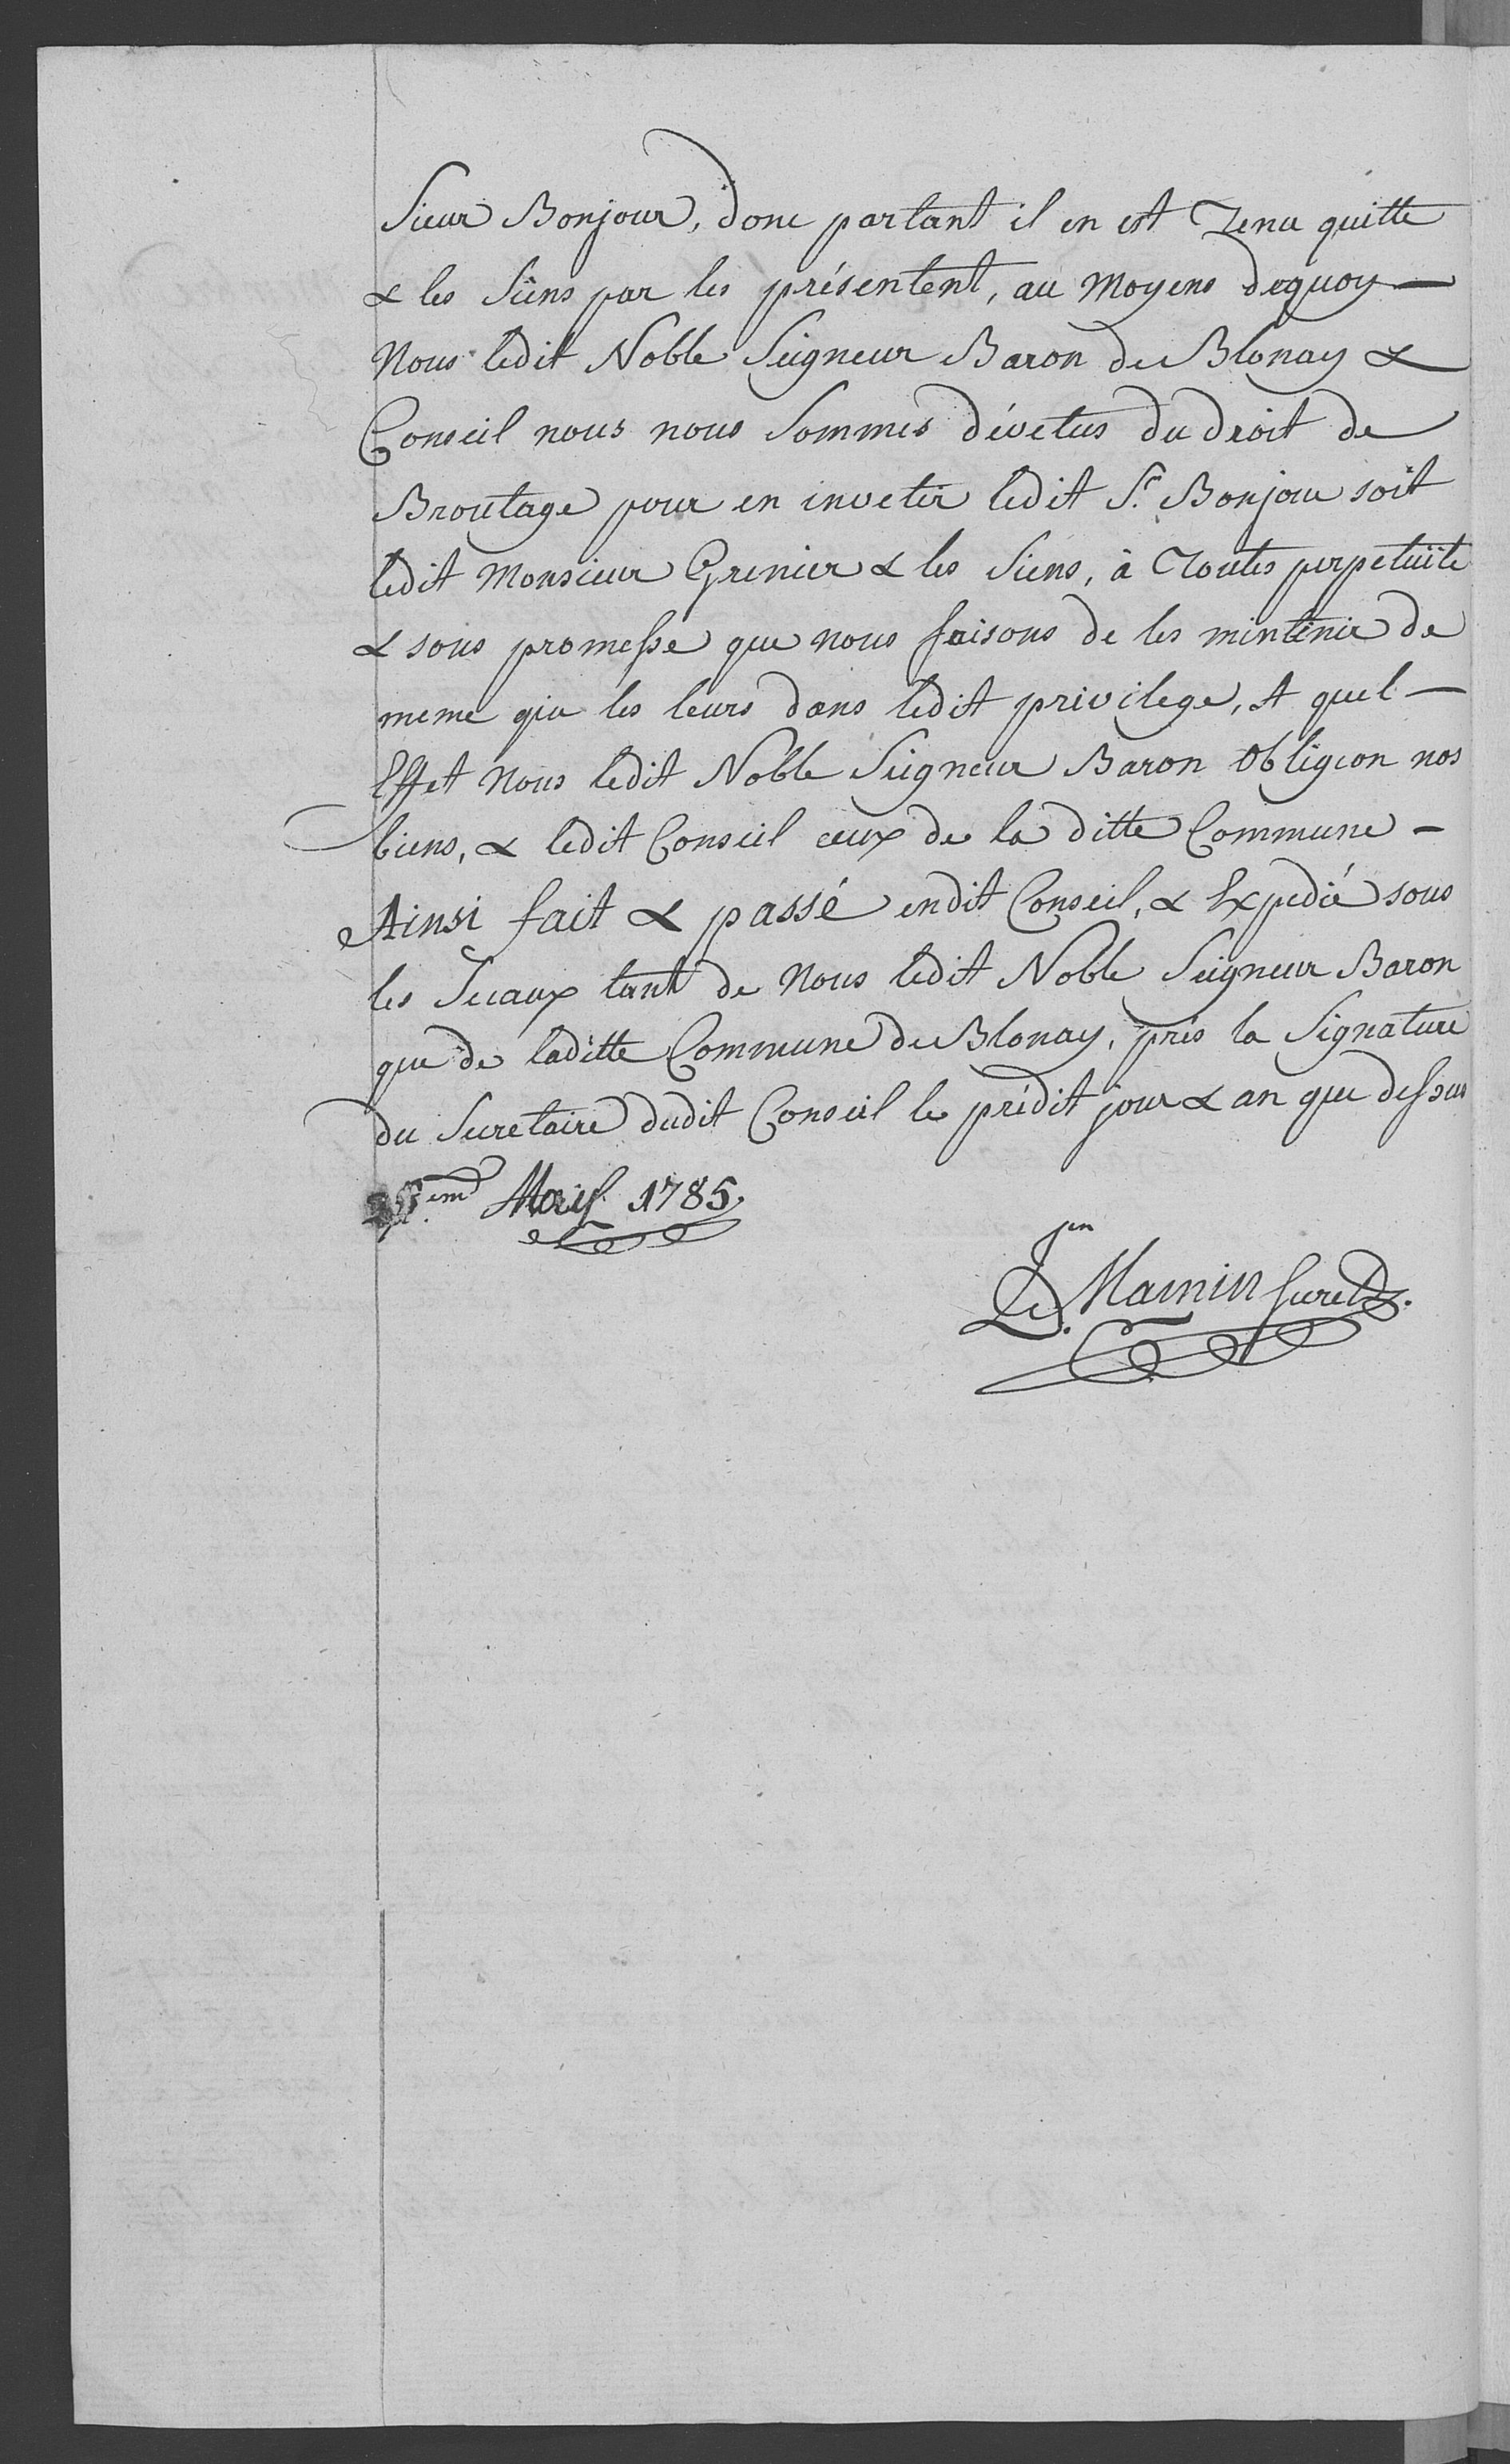 Sieur Bonjour, donc partant il en est Tenu quitte
& les Siens par les présentent, au Moyens dequoy —
Nous ledit Noble Seigneur Baron de Blonay &
Conseil nous nous Sommes dévetus du droit de
Broutage pour en invetir ledit Sr. Bonjour soit
ledit Monsieur Grenier & les Siens, à Toutes perpetuité
& sous promesse que nous faisons de les mintenir de
meme que les leurs dans ledit privilege, A quel —
Effet Nous ledit Noble Seigneur Baron Obligeon nos
biens, & ledit Conseil ceux de la ditte Commune –
Ainsi fait & passé endit Conseil, & Expedié sous
les Sceaux tant de Nous ledit Noble Seigneur Baron
que de laditte Commune de Blonay, prés la Signature
du Secretaire dudit Conseil le prédit jour & an que dessus
1785.
Mamin Secret.